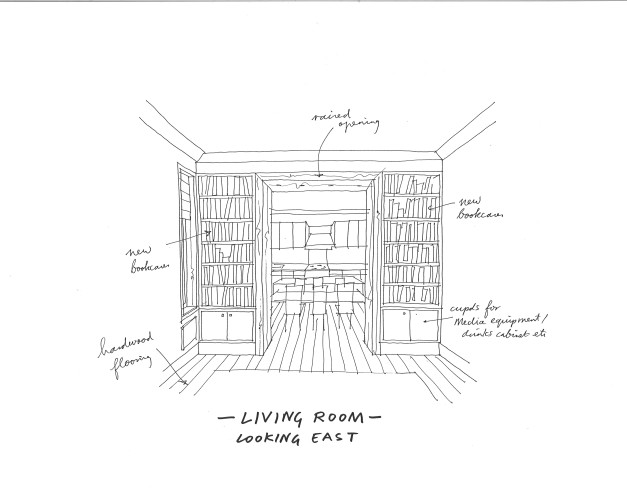 raised
opening
new
bookcases
new
bookcases
cupds for
Media equipment/
drinks cabinet etc
hardwood
flooring
— LIVING ROOM —
LOOKING EAST